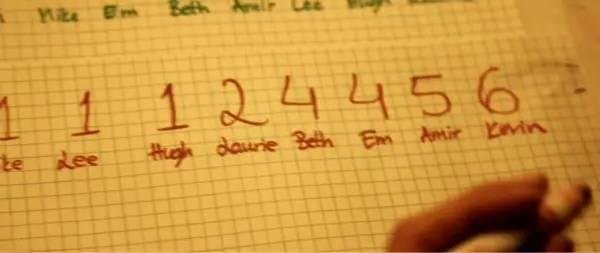 Mike Em Beth Amir Lee Hugh
1 1 1 2 4 4 5 6
ke Lee Hugh Laurie Beth Em Amir Kevin